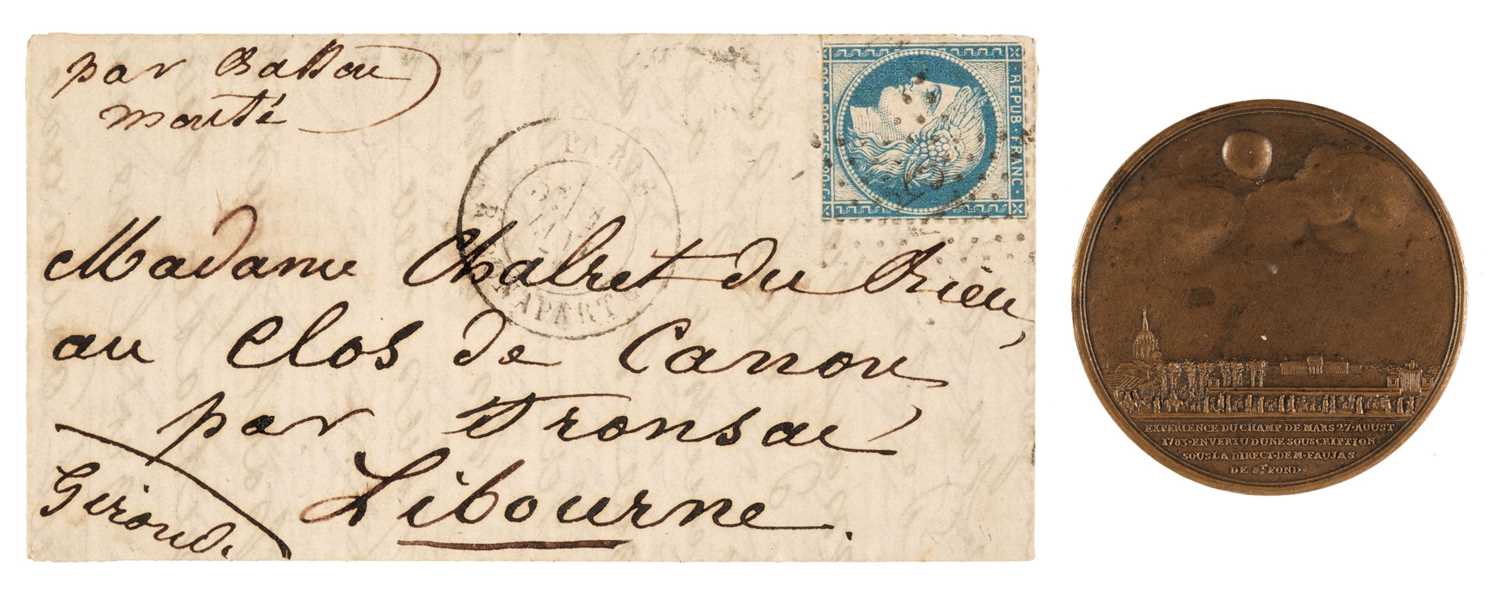 par Ballon
monté
REPUB. FRANC.
PARIS
R. BONAPARTE
Madame Chalret du Rieu,
au Clos de Canon
par Fronsac
Libourne.
Gironde
EXPERIENCE DU CHAMP DE MARS 27 AOUST
1783 EN VERTU DUNE SOUSCRIPTION
SOUS LA DIRECT DE M FAUJAS
DE ST FOND